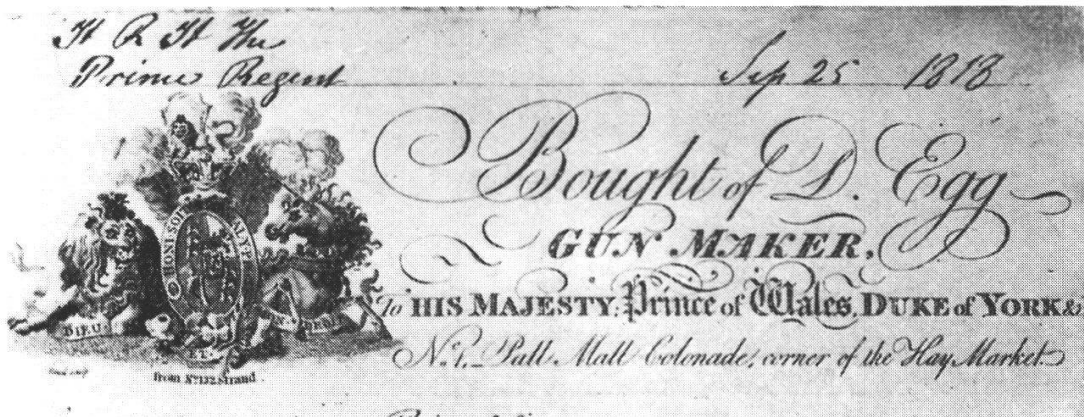 H R H The
Prince Regent
Sep 25 1818
Bought of D. Egg
GUN MAKER,
To HIS MAJESTY, Prince of Wales, DUKE of YORK &c
No. 1, Pall Mall Colonade, corner of the Hay Market
HONI SOIT MAL Y P
DIEU ET
from No. 132 Strand